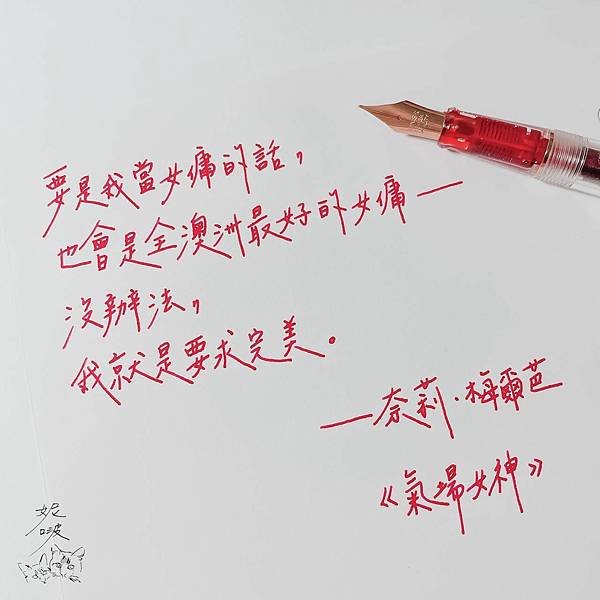 要是我當女傭的話，
也會是全澳洲最好的女傭—
沒辦法，
我就是要求完美。
—奈莉·梅爾芭
《氣場女神》
妮
啵